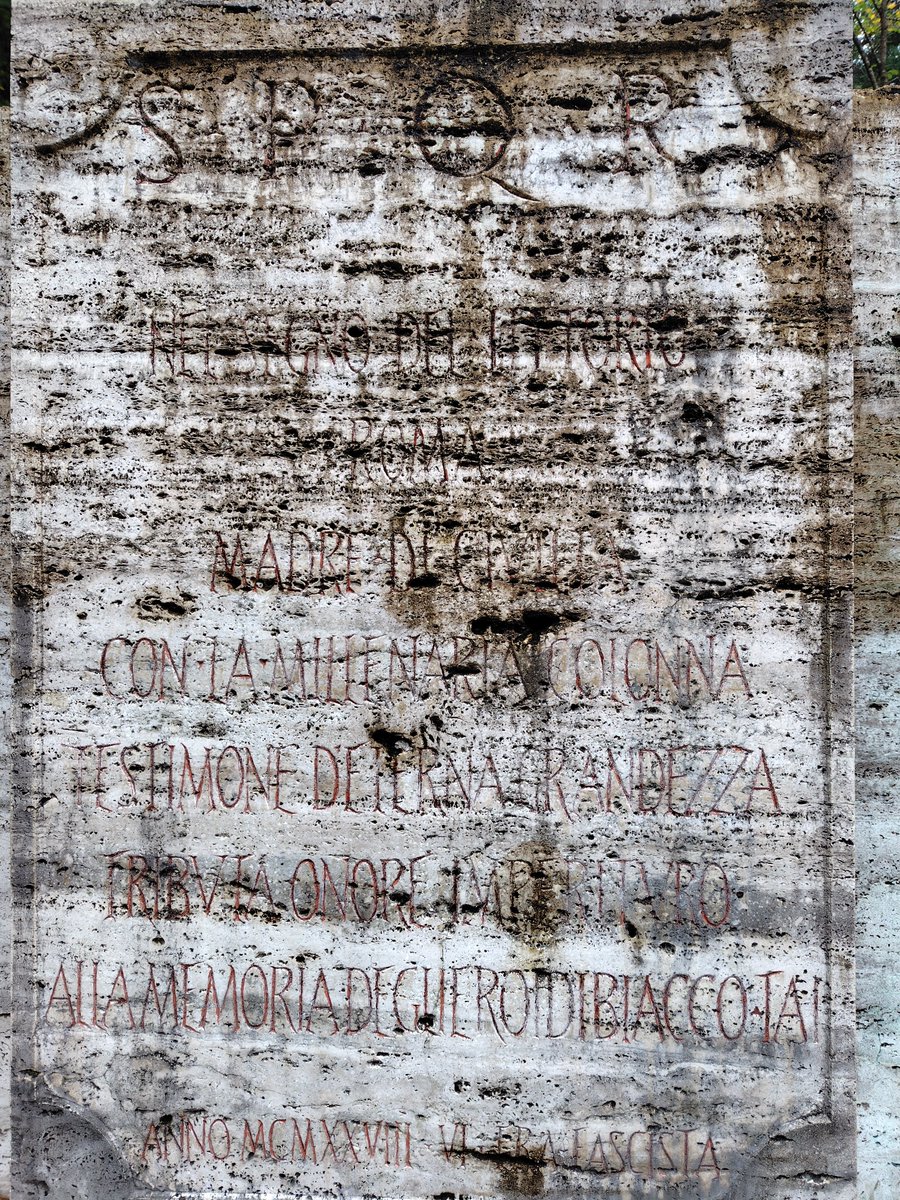 S P Q R
NEL SEGNO DEL LITTORIO
ROMA
MADRE DI CIVILTA
CON·LA·MILLENARIA COLONNA
TESTIMONE D ETERNA GRANDEZZA
TRIBVTA ONORE IMPERITVRO
ALLA MEMORIA DEGLI EROI DI BIACCO·IAI
ANNO MCMXXVIII VI ERA FASCISTA